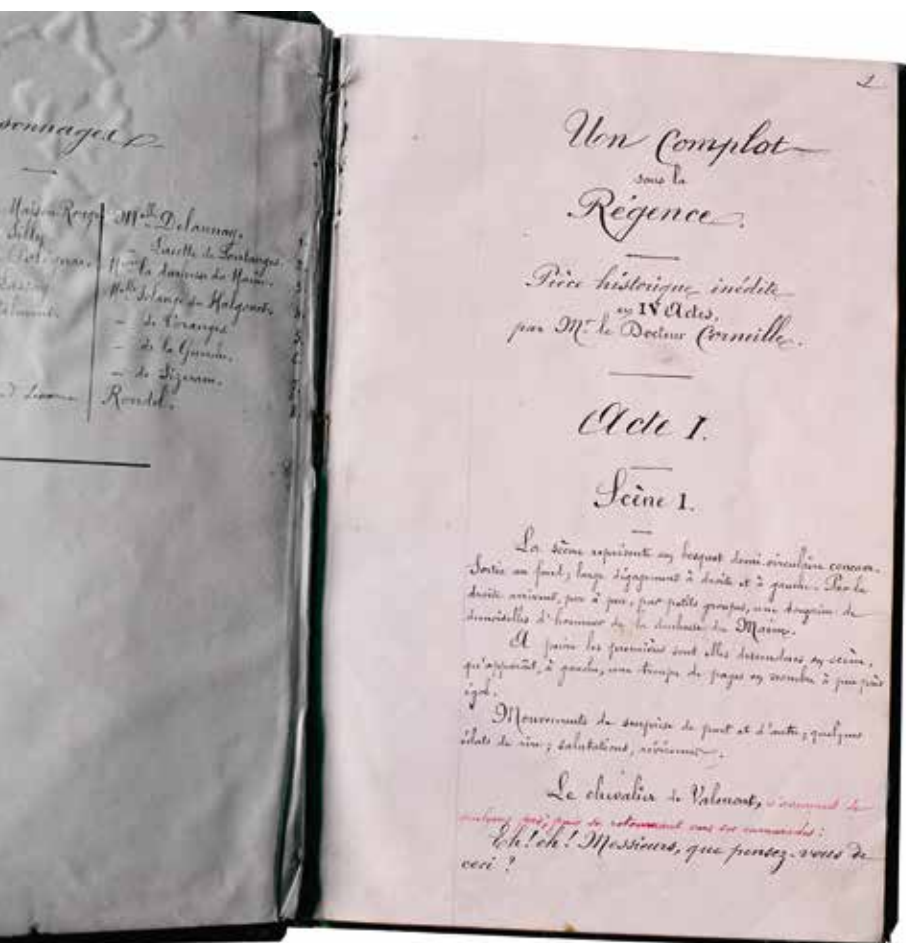 sonnages
Maison-Rouge
Silly
Polignac
Valmont.
Melle Delaunay. 1.
– Lucette de Fontanges. 2.
Mme la duchesse du Maine. 3.
Melle Solange du Malgouet. 4.
– de Voranges 5.
– de la 6.
– de 7.
Rondel. 8.
1
Un Complot
sous la
Régence.
Pièce historique inédite
en IV Actes,
par Mr. le Docteur Corneille.
Acte I.
Scène 1.
La scène représente un bosquet demi-circulaire
Sortie au fond, large dégagement à droite et à gauche. Par la
droite arrivent, peu à peu, par petits groupes, une douzaine de
demoiselles d'honneur de la duchesse du Maine.
A peine les premières sont elles descendues en scène,
qu'apparaît, à gauche, une troupe de pages en nombre à peu près
égal.
Mouvements de surprise de part et d'autre; quelques
éclats de rire; salutations, révérences.
Le chevalier de Valmont, s'avançant de
quelques pas, puis se retournant vers ses camarades:
Eh! eh! Messieurs, que pensez-vous de
ceci?